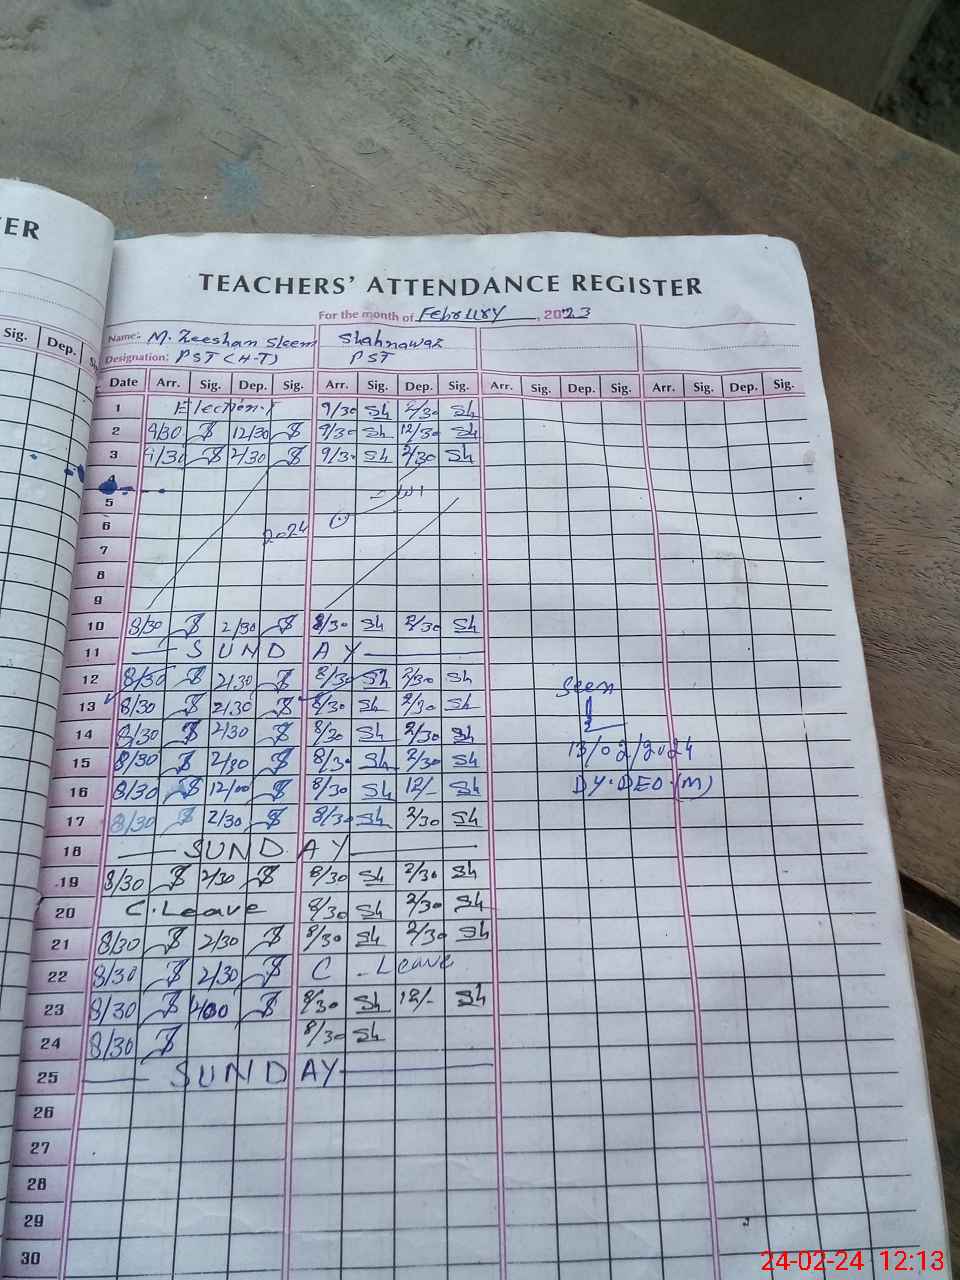 ER
TEACHERS' ATTENDANCE REGISTER
For the month of Februry, 2023
Name: M. Zeeshan Sleem Shahnawaz
Designation: PST (H-T) PST
Sig. Dep.
Date Arr. Sig. Dep. Sig. Arr. Sig. Dep. Sig. Arr. Sig. Dep. Sig. Arr. Sig. Dep. Sig.
1 Election 9/30 Sh 2/30 Sh
2 9/30 12/30 9/30 Sh 12/30 Sh
3 9/30 2/30 9/30 Sh 2/30 Sh
4
5
6 2024
7
8
9
10 8/30 2/30 8/30 Sh 2/30 Sh
11 SUNDAY
12 8/30 2/30 8/30 Sh 2/30 Sh
13 8/30 2/30 8/30 Sh 2/30 Sh
Seen
14 8/30 2/30 8/30 Sh 2/30 Sh
15 8/30 2/30 8/30 Sh 2/30 Sh
13/02/2024
16 8/30 12/00 8/30 Sh 12/- Sh
DY.DEO.(M)
17 8/30 2/30 8/30 Sh 2/30 Sh
18 SUNDAY
19 8/30 2/30 8/30 Sh 2/30 Sh
20 C.Leave 8/30 Sh 2/30 Sh
21 8/30 2/30 8/30 Sh 2/30 Sh
22 8/30 2/30 C-Leave
23 8/30 8/30 Sh 12/- Sh
24 8/30 8/30 Sh
25 SUNDAY
26
27
28
29
30
24-02-24 12:13